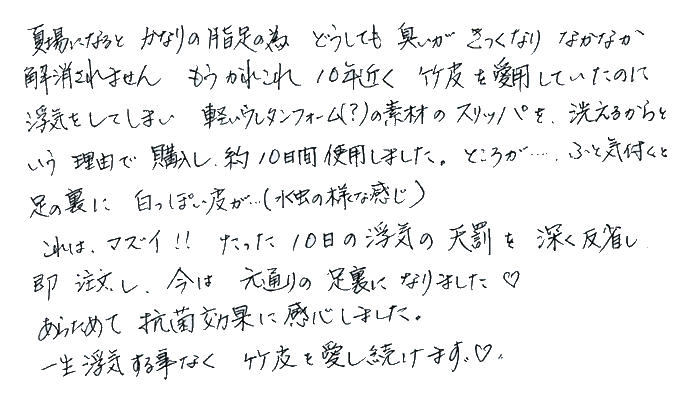 夏場になると かなりの脂足の為 どうしても 臭いが きつくなり なかなか
解消されません もうかれこれ 10年近く 竹皮を愛用していたのに
浮気をしてしまい 軽いウレタンフォーム(?)の素材の スリッパを、洗えるからと
いう 理由で 購入し、約10日間使用しました。ところが…、ふと気付くと
足の裏に 白っぽい皮が…(水虫の様な感じ)
これは、マズイ!! たった 10日の浮気の 天罰を 深く反省し
即 注文し、今は 元通りの 足裏に なりました♡
あらためて 抗菌効果に感心しました。
一生浮気する事なく 竹皮を愛し続けます、♡、